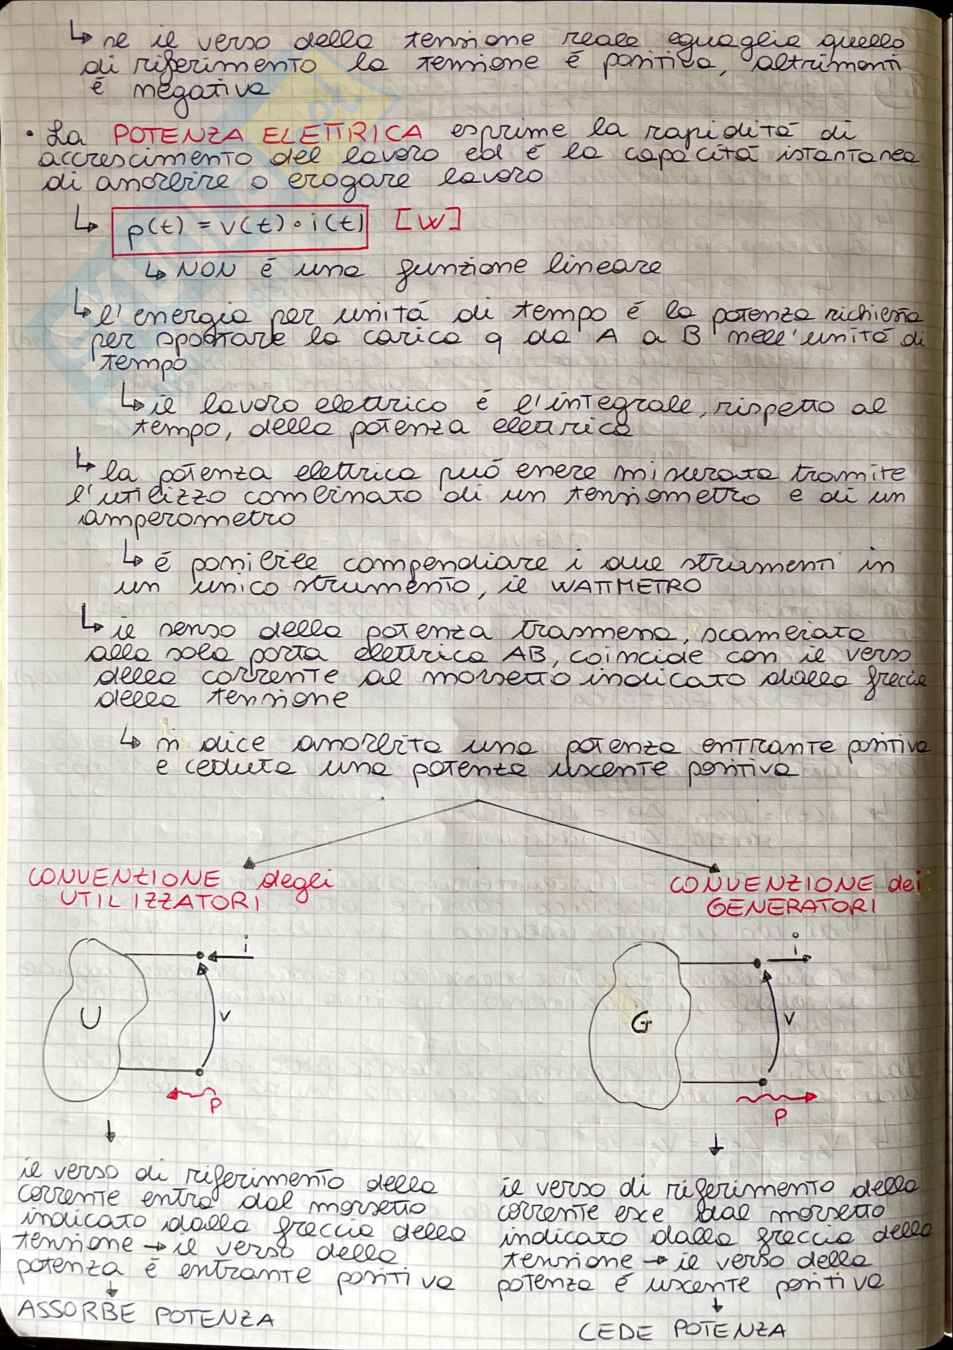 ↳ se il verso della tensione reale eguaglia quello
di riferimento la tensione é positiva, altrimenti
é negativa
• La POTENZA ELETTRICA esprime la rapiditá di
accrescimento del lavoro ed é la capacitá istantanea
di assorbire o erogare lavoro
↳ p(t) = v(t) • i(t) [W]
↳ NON é una funzione lineare
↳ l'energia per unitá di tempo é la potenza richiesta
per spostare la carica q da A a B nell'unitá di
tempo
↳ il lavoro elettrico é l'integrale, rispetto al
tempo, della potenza elettrica
↳ la potenza elettrica puó essere misurata tramite
l'utilizzo combinato di un tensiometro e di un
amperometro
↳ é possibile compendiare i due strumenti in
un unico strumento, il WATTMETRO
↳ il senso della potenza trasmessa, scambiata
alla sola porta elettrica AB, coincide con il verso
della corrente al morsetto indicato dalla freccia
della tensione
↳ si dice assorbita una potenza entrante positiva
e ceduta una potenza uscente positiva
CONVENZIONE degli
UTILIZZATORI
i
U
v
P
↓
il verso di riferimento della
corrente entra dal morsetto
indicato dalla freccia della
tensione → il verso della
potenza é entrante positiva
↓
ASSORBE POTENZA
CONVENZIONE dei
GENERATORI
i
G
v
P
↓
il verso di riferimento della
corrente esce dal morsetto
indicato dalla freccia della
tensione → il verso della
potenza é uscente positiva
↓
CEDE POTENZA